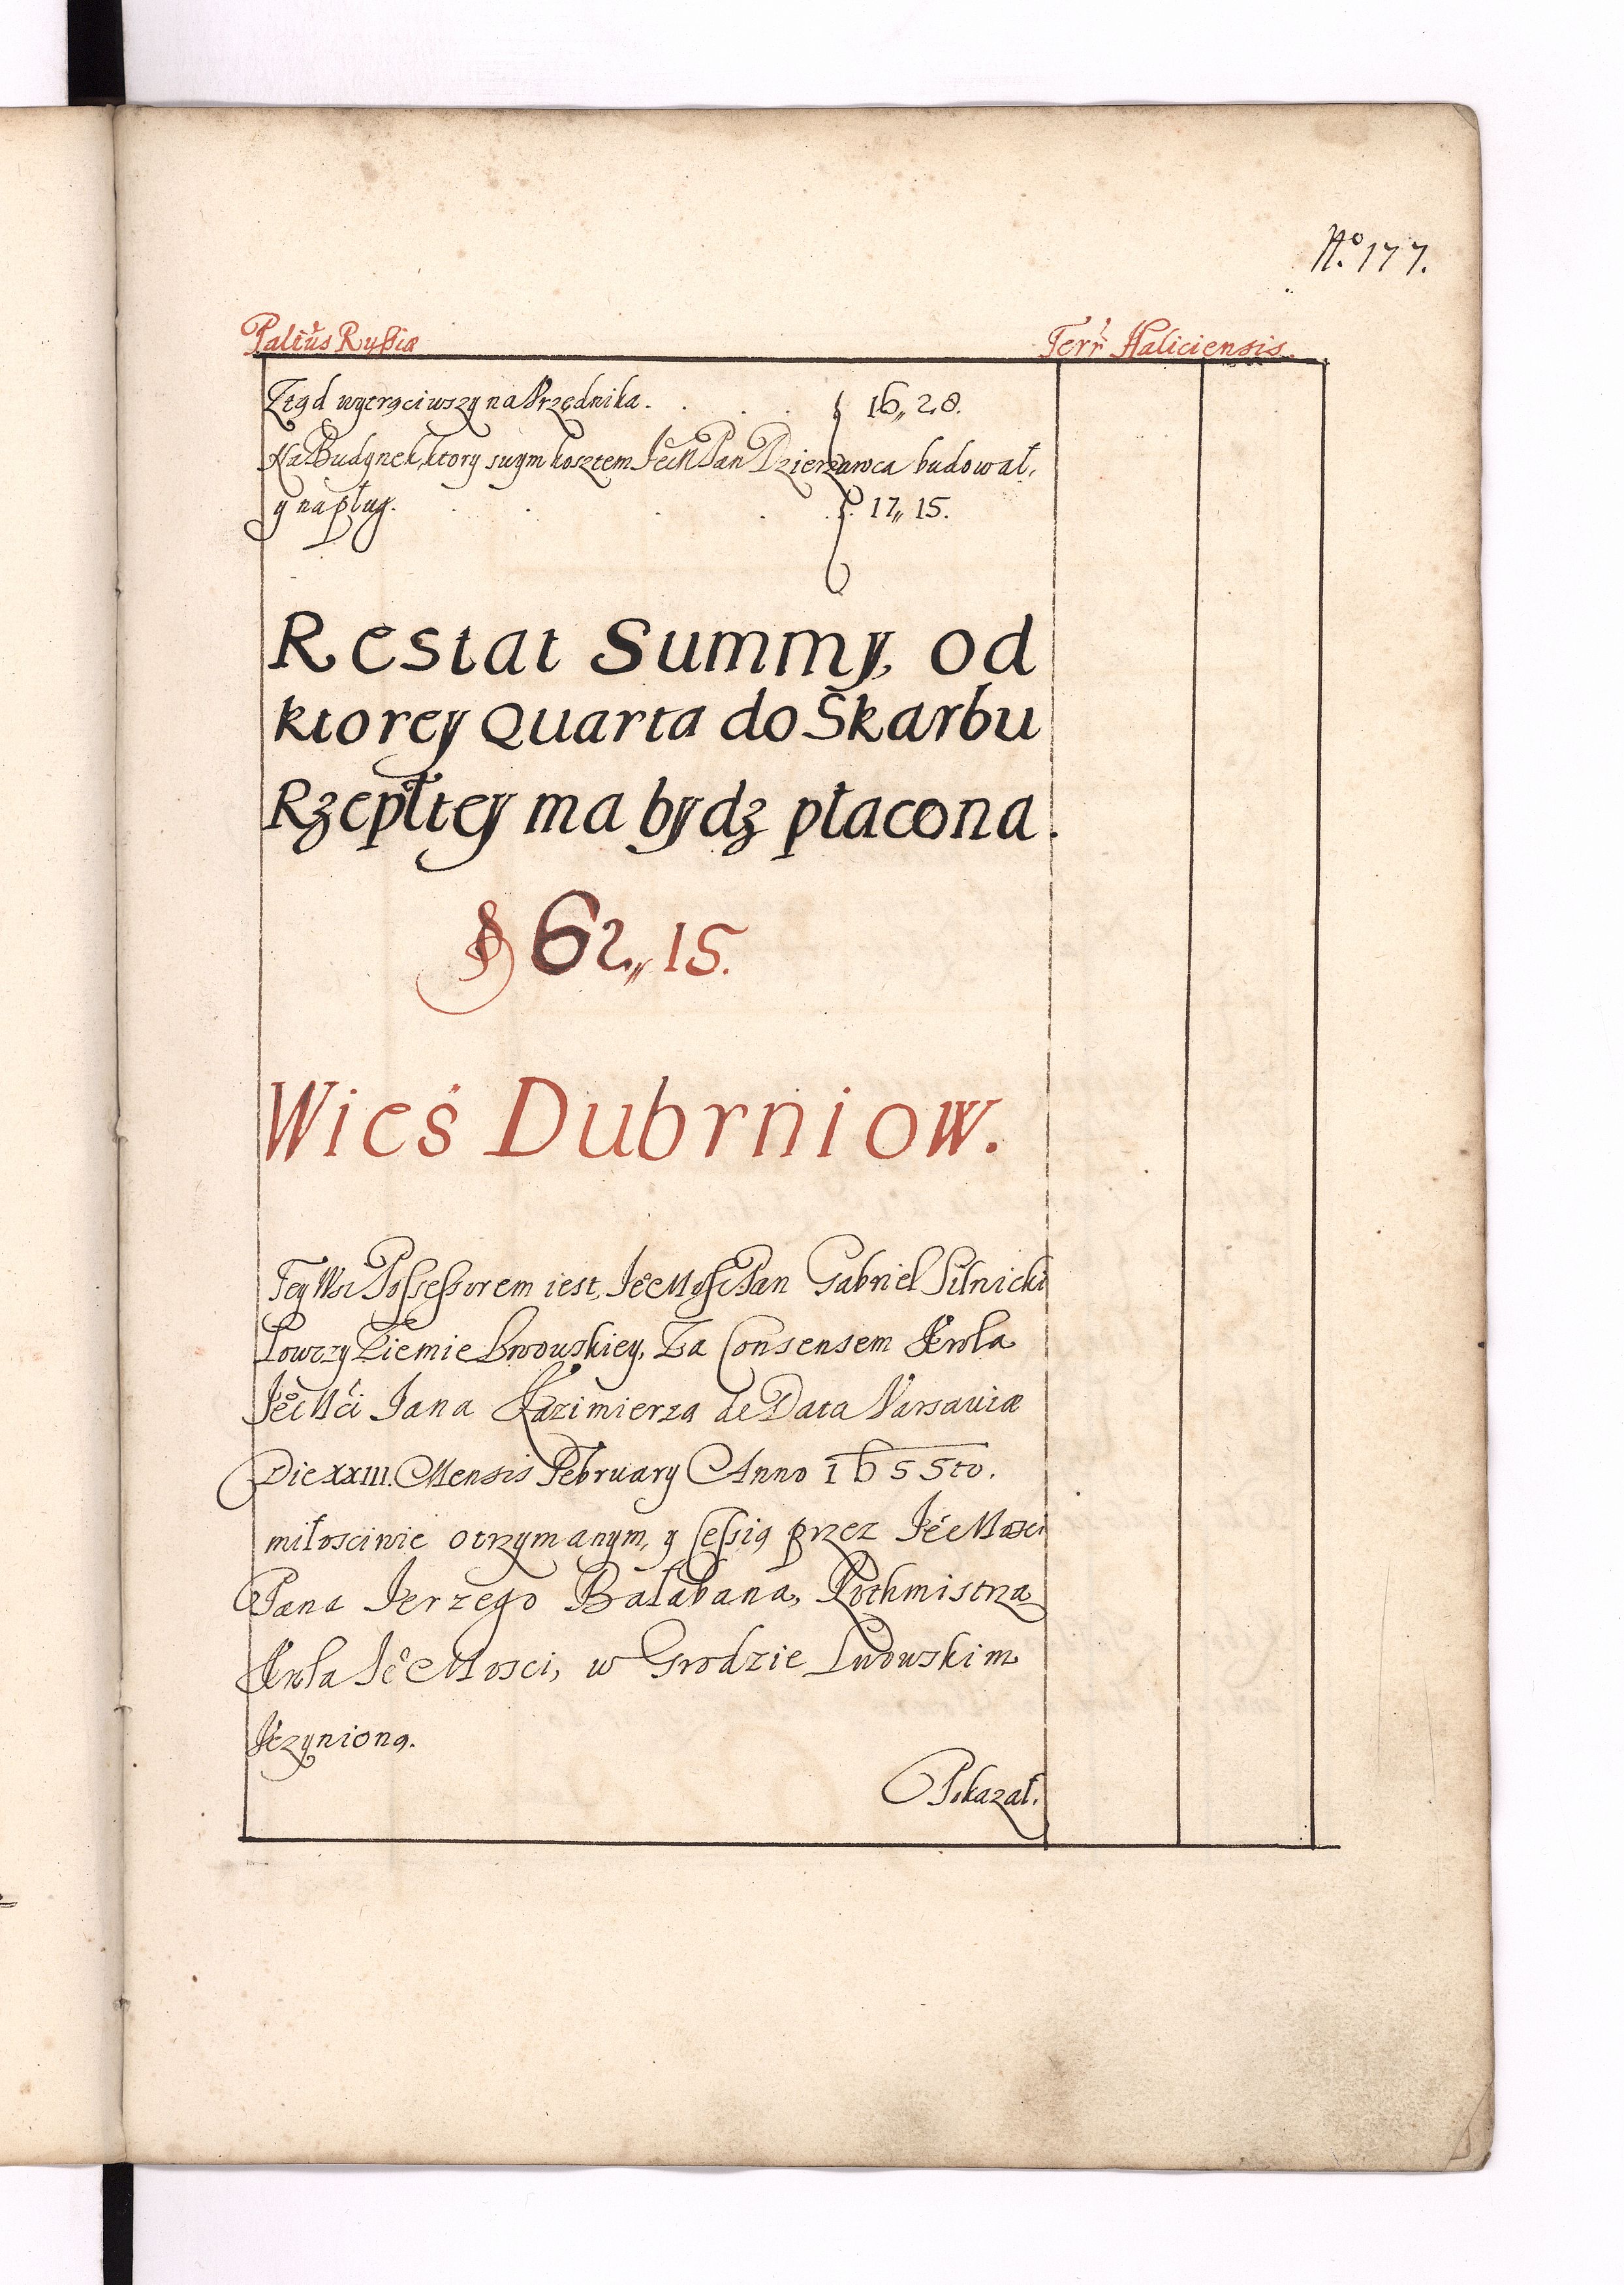 No. 177.
Paltus Russiæ Terr Haliciensis.
Ztąd wytrąciwszy na Vrzędnika. 16,, 28.
Na Budynek, ktory swym kosztem JeM Pan Dzierzawca budował,
y na pług. 17,, 15.
Restat Summy, od
ktorey Quarta do Skarbu
Rzepltey ma bydz płacona.
62,, 15.
Wieś Dubrniow.
Tey Wsi Possessorem iest, Je Mosc Pan Gabriel Silnicki
Łowczy Ziemie Lwowskiey, Za Consensem Krola
Je Mci Jana Kazimierza de Data Varsaviæ
Die XXIII. Mensis February Anno 1655to.
miłosciwie otrzymanym, y Cessią przez Je Mosci
Pana Jerzego Bałabana, Rothmistrza
Krola Je Mosci, w Grodzie Lwowskim
Vczynioną.
Pokazał.